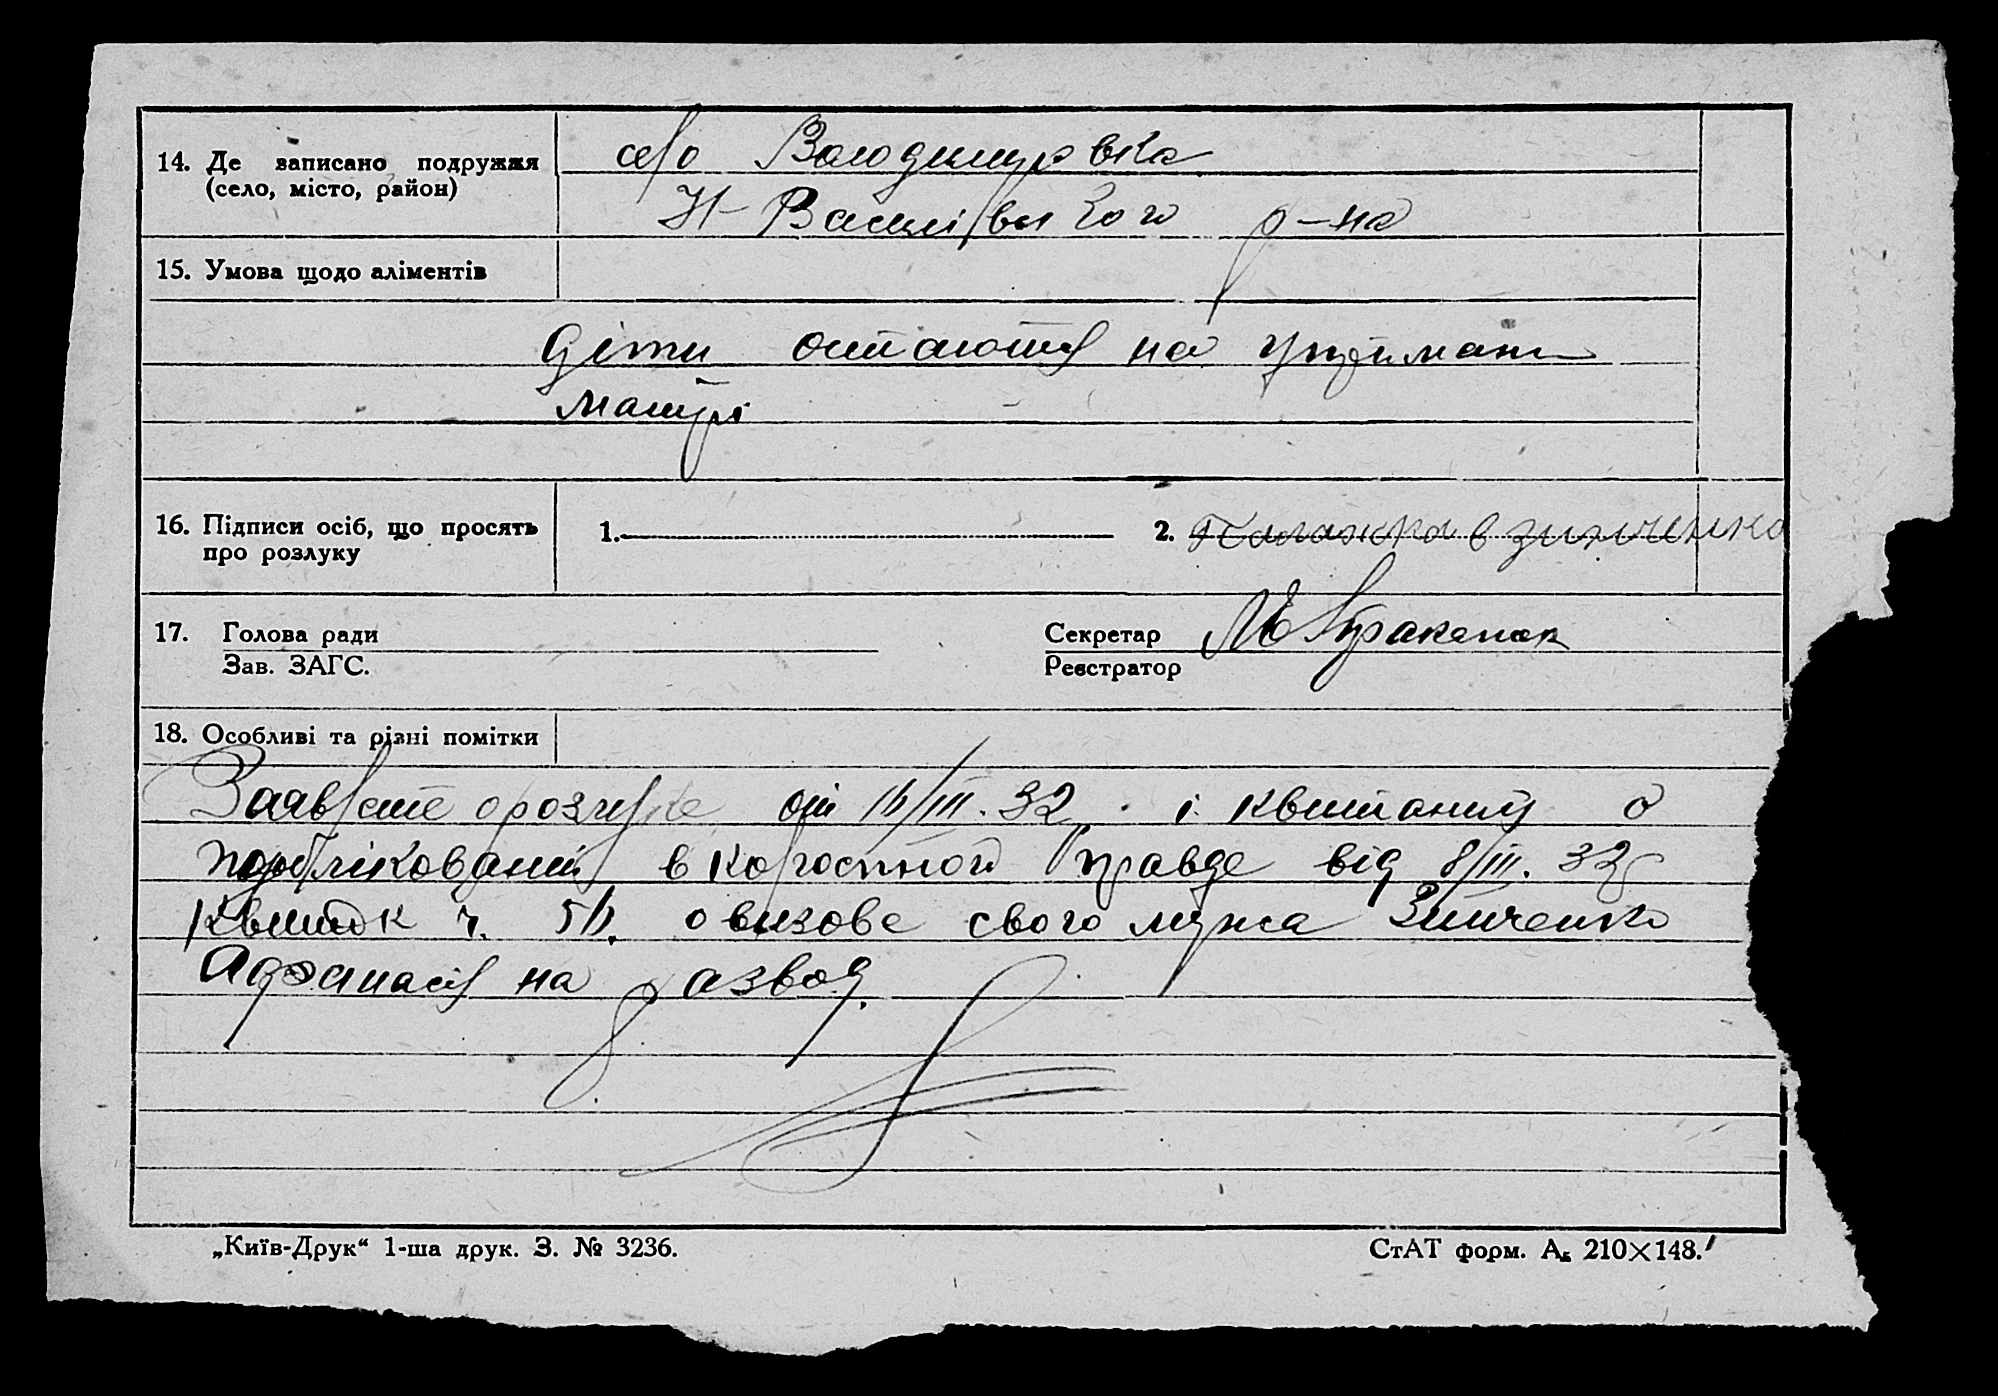 14. Де записано подружжя
(село, місто, район)
село Володимировка
Н-Василівського р-на
15. Умова щодо аліментів
Діти остаються на утримані
матері
16. Підписи осіб, що просять
про розлуку
1. 2. Палажка Зинченко
17. Голова ради
Зав. ЗАГС.
Секретар
Реєстратор
18. Особливі та різні помітки
Заявление о розлуке от /III. 32 і квитанция о
публікований в Колгоспной Правде від 8/III. 32
квиток ч. о визове свого мужа Зинченко
Афанасія на развод.
„Київ-Друк“ 1-ша друк. З. № 3236.
СтАТ форм. А₅ 210×148.